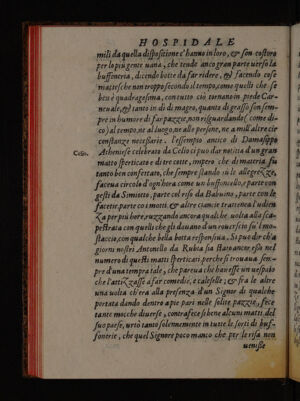 HOSPIDALE
mili da quella dispositione c'hanno in loro, & son costoro
per lo piu gente vana, che tende anco gran parte verso la
buffoneria, dicendo botte da far ridere, & facendo cose
mattesche non troppo secondo il tempo, come quelli che se
ben è quadragesima, con tutto ciò tornano in pede Car-
neuale, & tanto in dì di magro, quanto di grasso son sem-
pre in humore di far pazzie, non risguardando (come di-
co) al tempo, ne al luogo, ne alle persone, ne a mill'altre cir
constanze necessarie. l'essempio antico di Damasippo
Celio.
Atheniese celebrato da Celio ci puo dar notitia d'un gran
matto sperticato e di tre cotte, impero che di materia fù
tanto ben confettato, che sempre stando sù le allegrezze,
faceua circolo d'ogn'hora come un buffonaccio, parte con
gesti da Simiotto, parte col riso da Babuino, parte con le
facetie, parte co i motti, & altre ciancie trattenea l'udien
za per più hore, ruzzando ancora qualche uolta alla sca-
pestrata con quelli che gli dauano d'un rouerscio su'l mo-
staccio, con qualche bella botta responsiua. Si può dir ch'a
giorni nostri Antonello da Rubasia Bassanese essi nel
numero di questi matti sperticati perche si trouaua sem-
pre d'una tempra tale, che pareua che hauesse un uespaio
che l'attizzasse a far comedie, e calesselle; & fra le altre
una uolta ch'era alla presenza d'un Signor di qualche
portata dando dentro a pie pari nelle solite pazzie, fece
tante mocche diuerse, contrafece si bene alcuni matti del
suo paese, urtò tanto solennemente in tutte le sorti di buf-
fonerie, che quel Signore poco manco che per le risa non
uenisse